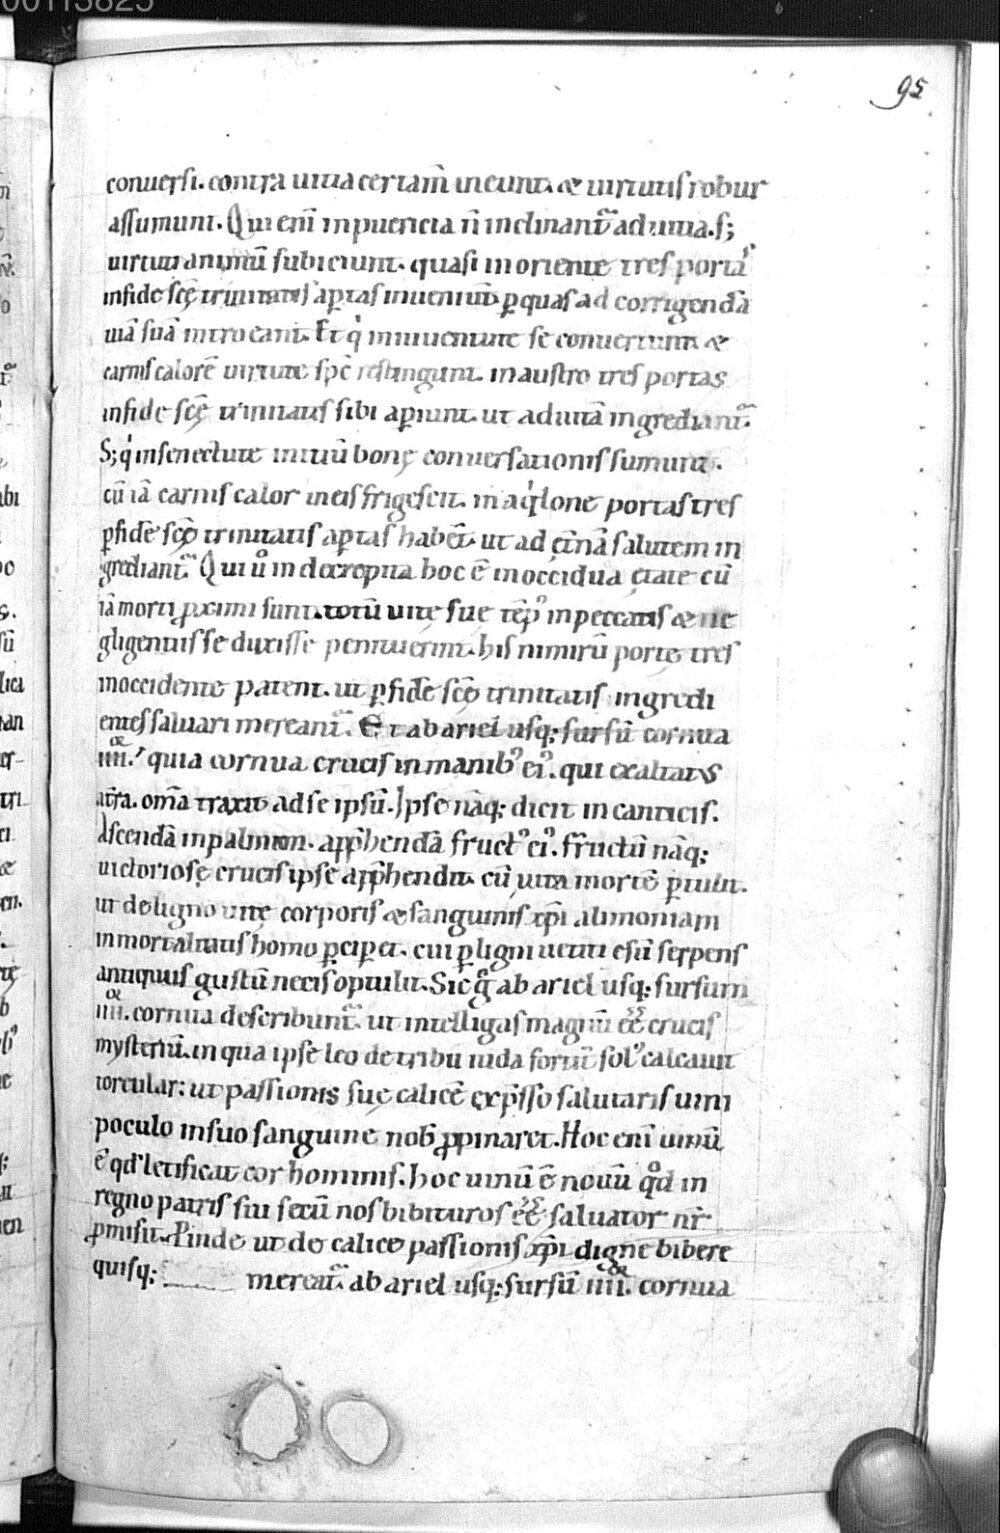 00113825
95
conuersi. contra uitia certam̄ ineunt. & uirtutis robur
assumunt. Qui eni᷒ inpuericia n̄ inclinant᷒ ad uitia. s;
uirtuti animū subiciunt. quasi in oriente tres portas
infide scę trinitatis aptas inueniunt. p quas ad corrigendā
uiā suā introeant. Et qi iniuuentute se conuertunt. &
carnis calorē uirtute spc restingunt. in austro tres portas
infide scę trinitatis sibi apiunt. ut aduitā ingrediant᷒.
S; qi insenectute initiū bonę conuersationis sumunt.
cū iā carnis calor ineis frigescit. in aqilone portas tres
p fidē scę trinitatis aptas habent. ut ad ęt̄nā salutem in
grediant᷒. Qui u° in decrepita hoc ē inoccidua ętate cū
iā morti pximi sunt. totū uite sue tēp᷒ inpeccatis & ne
gligentiis se duxisse penituerint. his nimirū porte tres
inoccidente patent. ut p fidē scę trinitatis ingredi
entes saluari mereant᷒. Et ab ariel usq; sursū cornua
iiii.or quia cornua crucis in manib᷒ ei᷒. qui exaltatus
a t̄ra. om̄a traxit ad se ipsū. Ipse nāq; dicit in canticis.
Ascendā inpalmam. apphendā fruct᷒ ei᷒. Fructū nāq;
uictoriose crucis ipse apphendit. cū uita mortē ptulit.
ut de ligno uitę corporis & sanguinis xp̄i alimoniam
inmortalitatis homo pciperet. cui p ligni uetiti esū serpens
antiquus gustū necis optulit. Sic g° ab ariel usq; sursum
iiii.or cornua describunt᷒. ut intelligas magnū ēē crucis
mysteriū. in qua ipse leo de tribu iuda fortit̄ sol᷒ calcauit
torcular: ut passionis suę calicē exp̄sso salutaris uini
poculo insuo sanguine nob̄ ppinaret. Hoc eni᷒ uinū
ē qd̄ letificat cor hominis. hoc uinū ē nouū qd̄ in
regno patris sui secū nos bibituros ēē saluator nr̄
pmisit. Pinde ut de calice passionis xp̄i digne bibere
quisq; mereat᷒. ab ariel usq; sursū iiii.or cornua